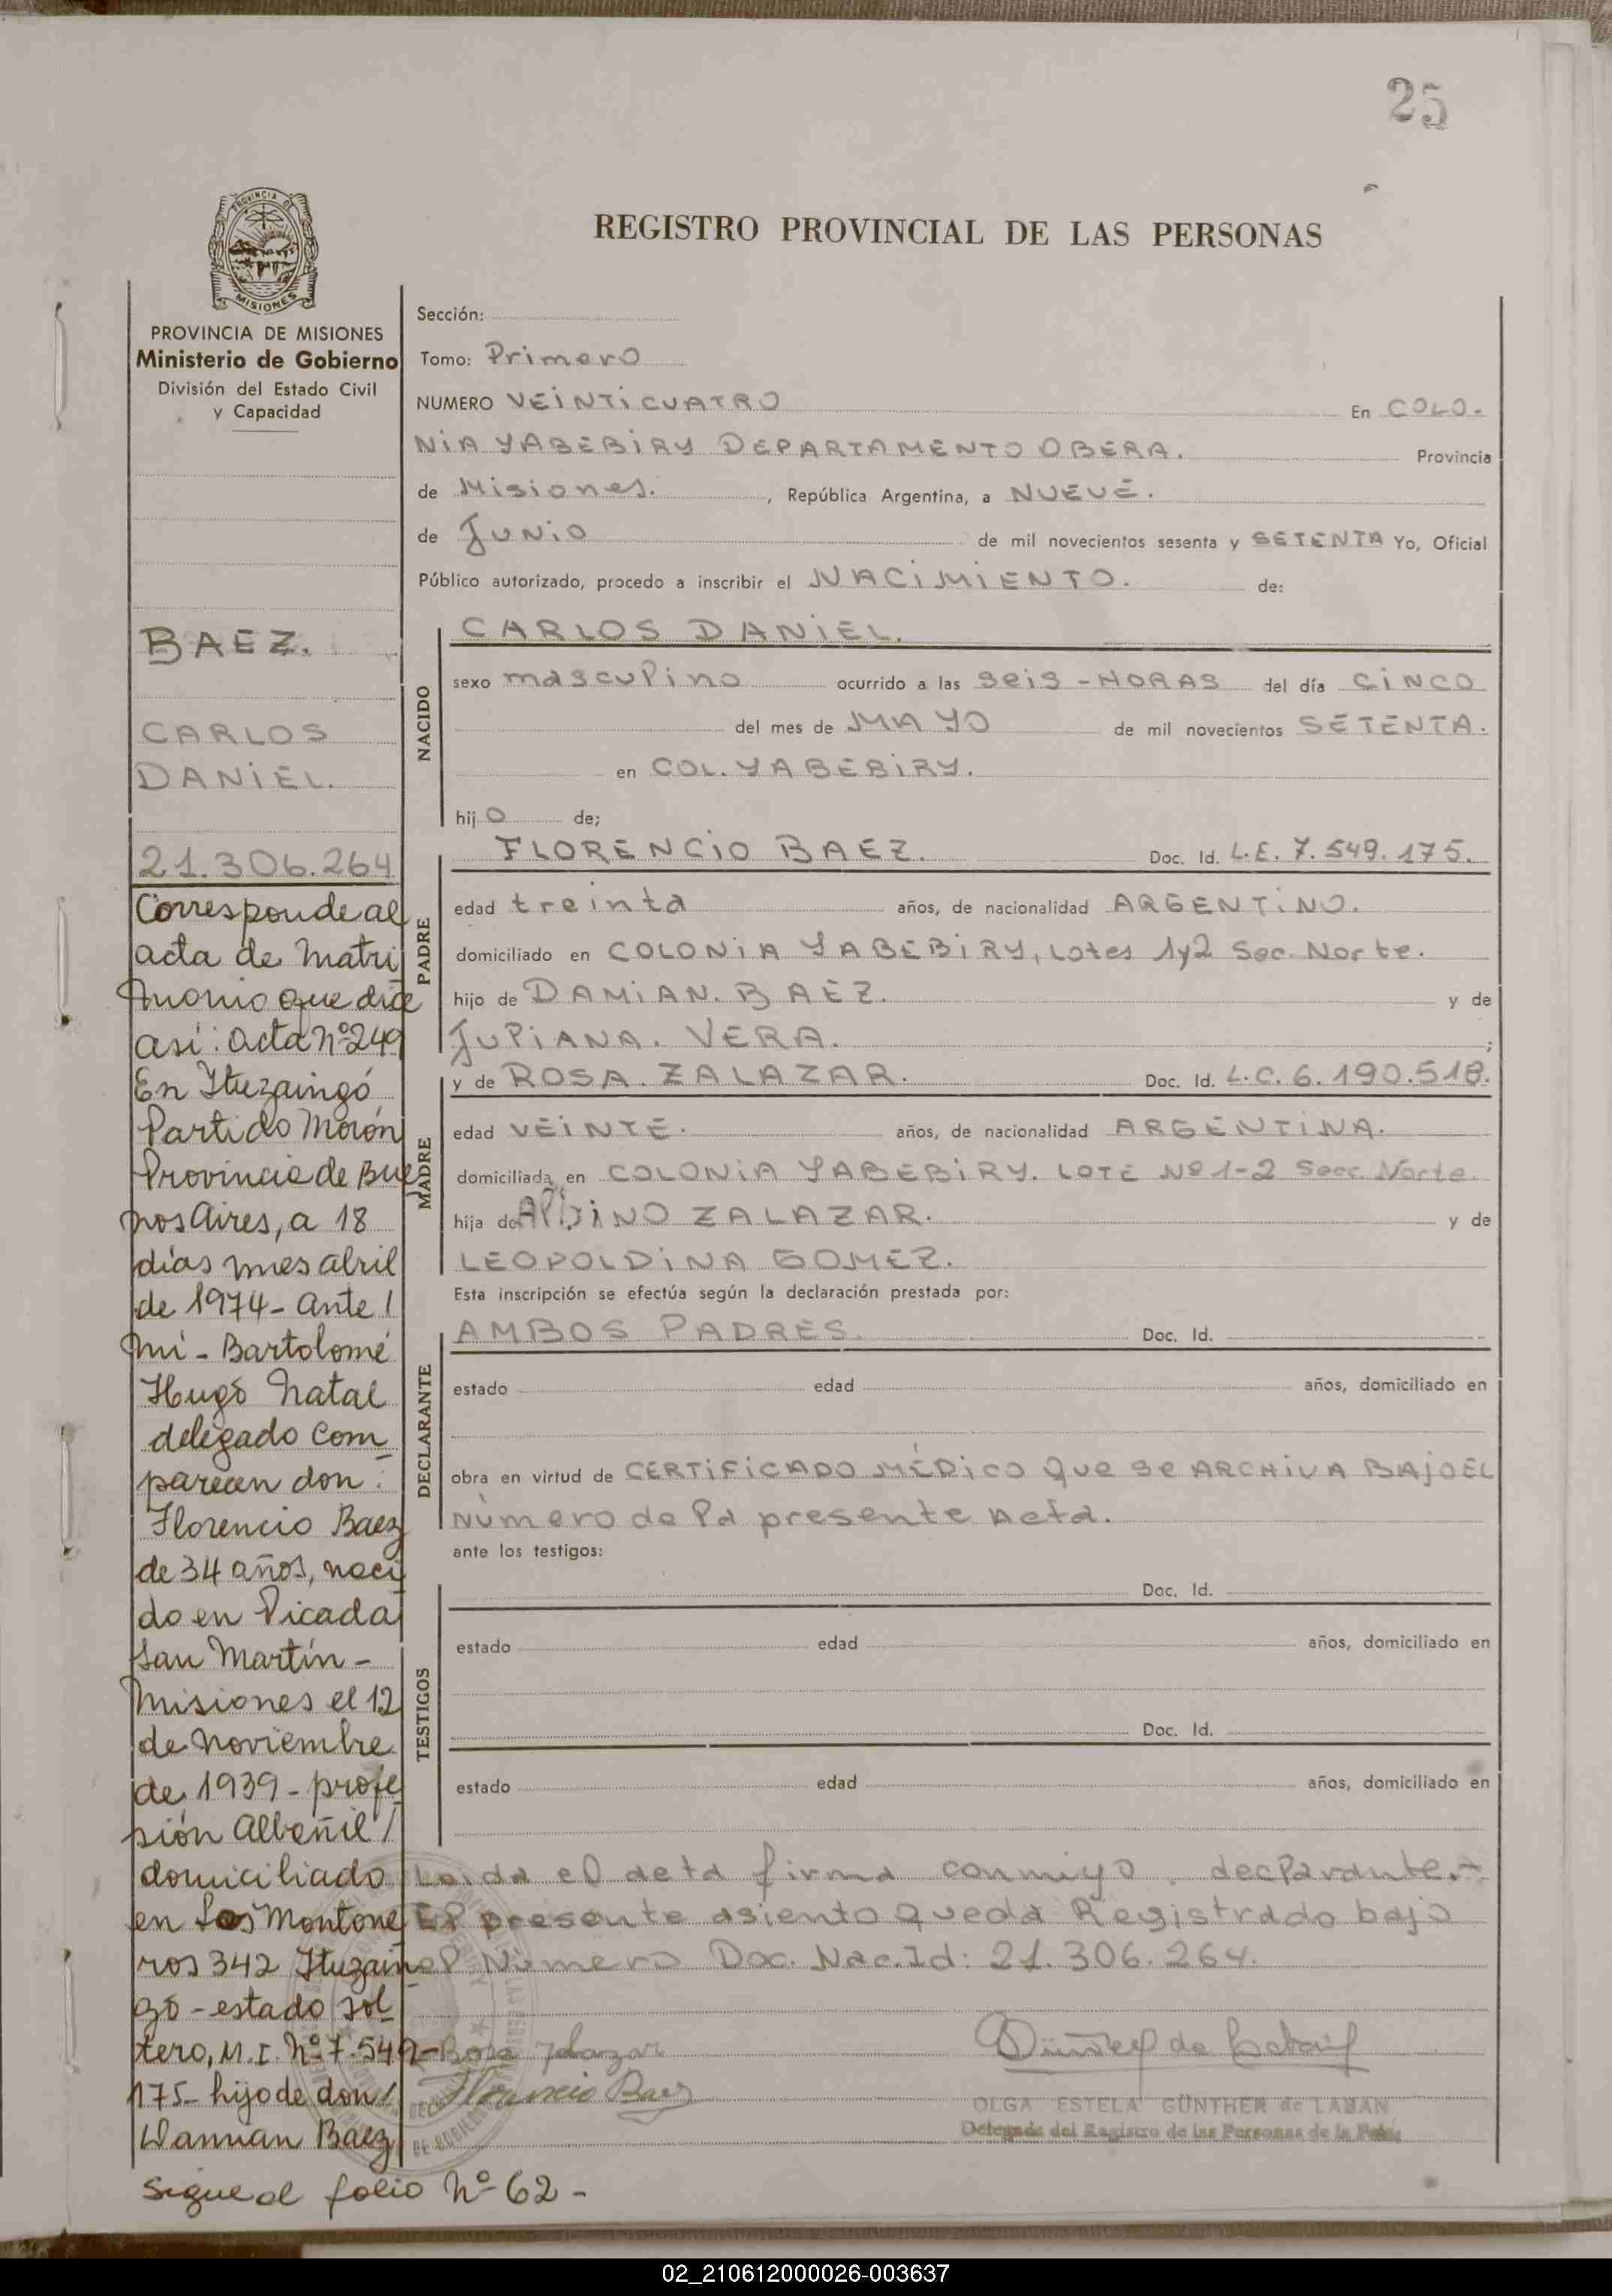 25
PROVINCIA DE
MISIONES
REGISTRO PROVINCIAL DE LAS PERSONAS
PROVINCIA DE MISIONES
Ministerio de Gobierno
División del Estado Civil
y Capacidad
BAEZ.
CARLOS
DANIEL.
21.306.264
Corresponde al
acta de matri
monio que dice
así: acta nº 249
En Ituzaingó
Partido Morón
Provincia de Bue
nos Aires, a 18
días mes abril
de 1974 - ante /
mí - Bartolomé
Hugo Natal
delegado com
parecen don:
Florencio Baez
de 34 años, naci
do en Picada
San Martín -
Misiones el 12
de noviembre
de 1939 - profe
sión Albañil /
domiciliado
en Los Montone
ros 342 Ituzain
gó - estado sol
tero, M.I. Nº 7.549-
175 - hijo de don /
Damian Baez
Sigue al folio Nº 62 -
Sección:
Tomo: Primero
NUMERO VEINTICUATRO En COLO.
NIA YABEBIRY DEPARTAMENTO OBERA. Provincia
de Misiones. , República Argentina, a NUEVE.
de Junio de mil novecientos sesenta y SETENTA Yo, Oficial
Público autorizado, procedo a inscribir el NACIMIENTO. de:
NACIDO
CARLOS DANIEL.
sexo masculino ocurrido a las seis - HORAS del día CINCO
del mes de MAYO de mil novecientos SETENTA.
en COL. YABEBIRY.
hijO de;
PADRE
FLORENCIO BAEZ. Doc. Id. L.E. 7.549.175.
edad treinta años, de nacionalidad ARGENTINO.
domiciliado en COLONIA YABEBIRY, Lotes 1y2 Sec. Norte.
hijo de DAMIAN. BAEZ. y de
JULIANA. VERA. ;
MADRE
y de ROSA. ZALAZAR. Doc. Id. L.C. 6.190.518.
edad VEINTE. años, de nacionalidad ARGENTINA.
domiciliada en COLONIA YABEBIRY. LOTE Nº 1-2 Secc. Norte.
hija de ZALAZAR. y de
LEOPOLDINA GOMEZ.
Esta inscripción se efectúa según la declaración prestada por:
DECLARANTE
AMBOS PADRES. Doc. Id.
estado edad años, domiciliado en
obra en virtud de CERTIFICADO MÉDICO que se ARCHIVA BAJO EL
Número de la presente acta.
ante los testigos:
TESTIGOS
Doc. Id.
estado edad años, domiciliado en
Doc. Id.
estado edad años, domiciliado en
Leida el acta firma conmigo declarante.-
El presente asiento queda Registrado bajo
el Número Doc. Nac. Id: 21.306.264.
Rosa Zalazar
Florencio Baez
OLGA ESTELA GÜNTHER de LABAN
Delegada del Registro de las Personas de la
02_210612000026-003637